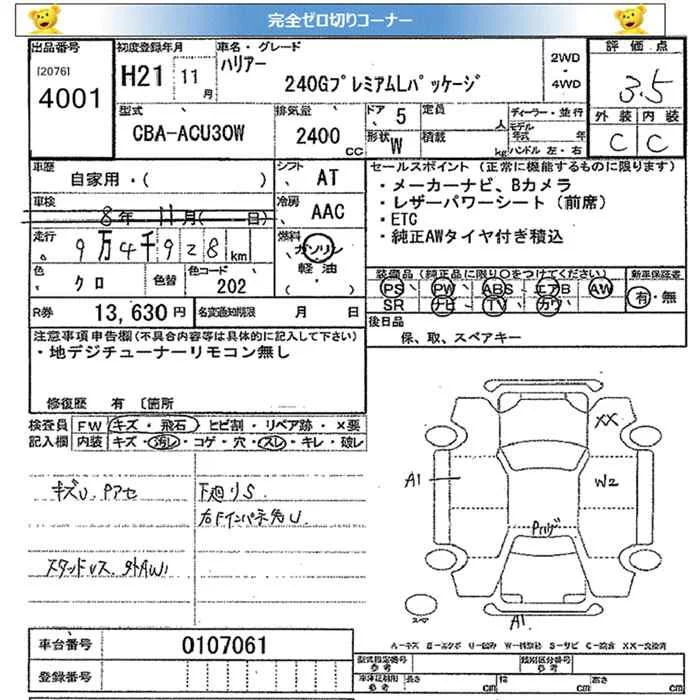 完全ゼロ切りコーナー
出品番号 初度登録年月 車名・グレード 評価点
[2076] H21 11月 ハリアー 2WD・4WD 3.5
4001 240GプレミアムLパッケージ
型式 排気量 ドア 5 定員 人 ディーラー・並行 外装 内装
CBA-ACU30W 2400cc 形状 W 積載 kg モデル年式 年 ハンドル 左・右 C C
車歴 シフト セールスポイント (正常に機能するものに限ります)
自家用・( ) AT ・メーカーナビ、Bカメラ
車検 8年 11月( 日) 冷房 AAC ・レザーパワーシート (前席)
・ETC
走行 9万4千928km 燃料 ガソリン・軽油 ・純正AWタイヤ付き積込
色 クロ 色替 色コード 202 装備品 (純正品に限り○をつけてください) 新車保証書
PS PW ABS エアB AW 有・無
R券 13,630円 名変通知期限 月 日 SR ナビ TV カワ
後日品
注意事項申告欄 (不具合内容等は具体的に記入して下さい) 保、取、スペアキー
・地デジチューナーリモコン無し
修復歴 有 〔箇所
検査員 FW キズ・飛石・ヒビ割・リペア跡・×要
記入欄 内装 キズ・汚レ・コゲ・穴・スレ・キレ・破レ
XX
A1 W2
キズU、Pアセ 下廻りS
スタッドレス、外AW
A1
スペア
A-キズ
車台番号 0107061
型式指定番号 参考 類別区分番号 参考
登録番号 車庫証明用 参考 長さ cm 幅 cm 高さ cm